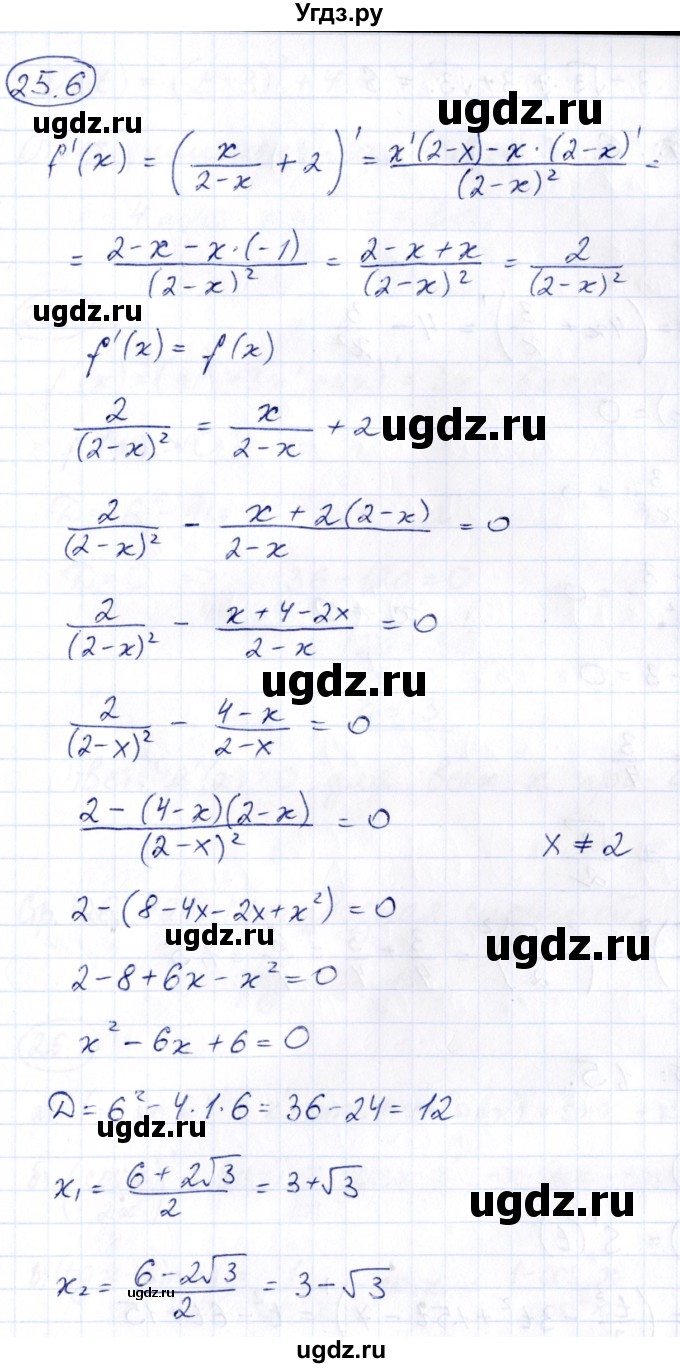 Угдз.ру
25.6
ugdz.ru
ugdz.ru
f'(x) = (x/(2-x) + 2)' = (x'(2-x) - x · (2-x)')/(2-x)² =
= (2-x-x·(-1))/(2-x)² = (2-x+x)/(2-x)² = 2/(2-x)²
ugdz.ru
f'(x) = f(x)
2/(2-x)² = x/(2-x) + 2
ugdz.ru
2/(2-x)² - (x+2(2-x))/(2-x) = 0
2/(2-x)² - (x+4-2x)/(2-x) = 0
ugdz.ru
2/(2-x)² - (4-x)/(2-x) = 0
(2-(4-x)(2-x))/(2-x)² = 0
x ≠ 2
2-(8-4x-2x+x²) = 0
ugdz.ru
ugdz.ru
2-8+6x-x² = 0
x²-6x+6 = 0
D = 6²-4·1·6 = 36-24 = 12
ugdz.ru
x₁ = (6+2√3)/2 = 3+√3
ugdz.ru
x₂ = (6-2√3)/2 = 3-√3
ugdz.ru
ugdz.ru